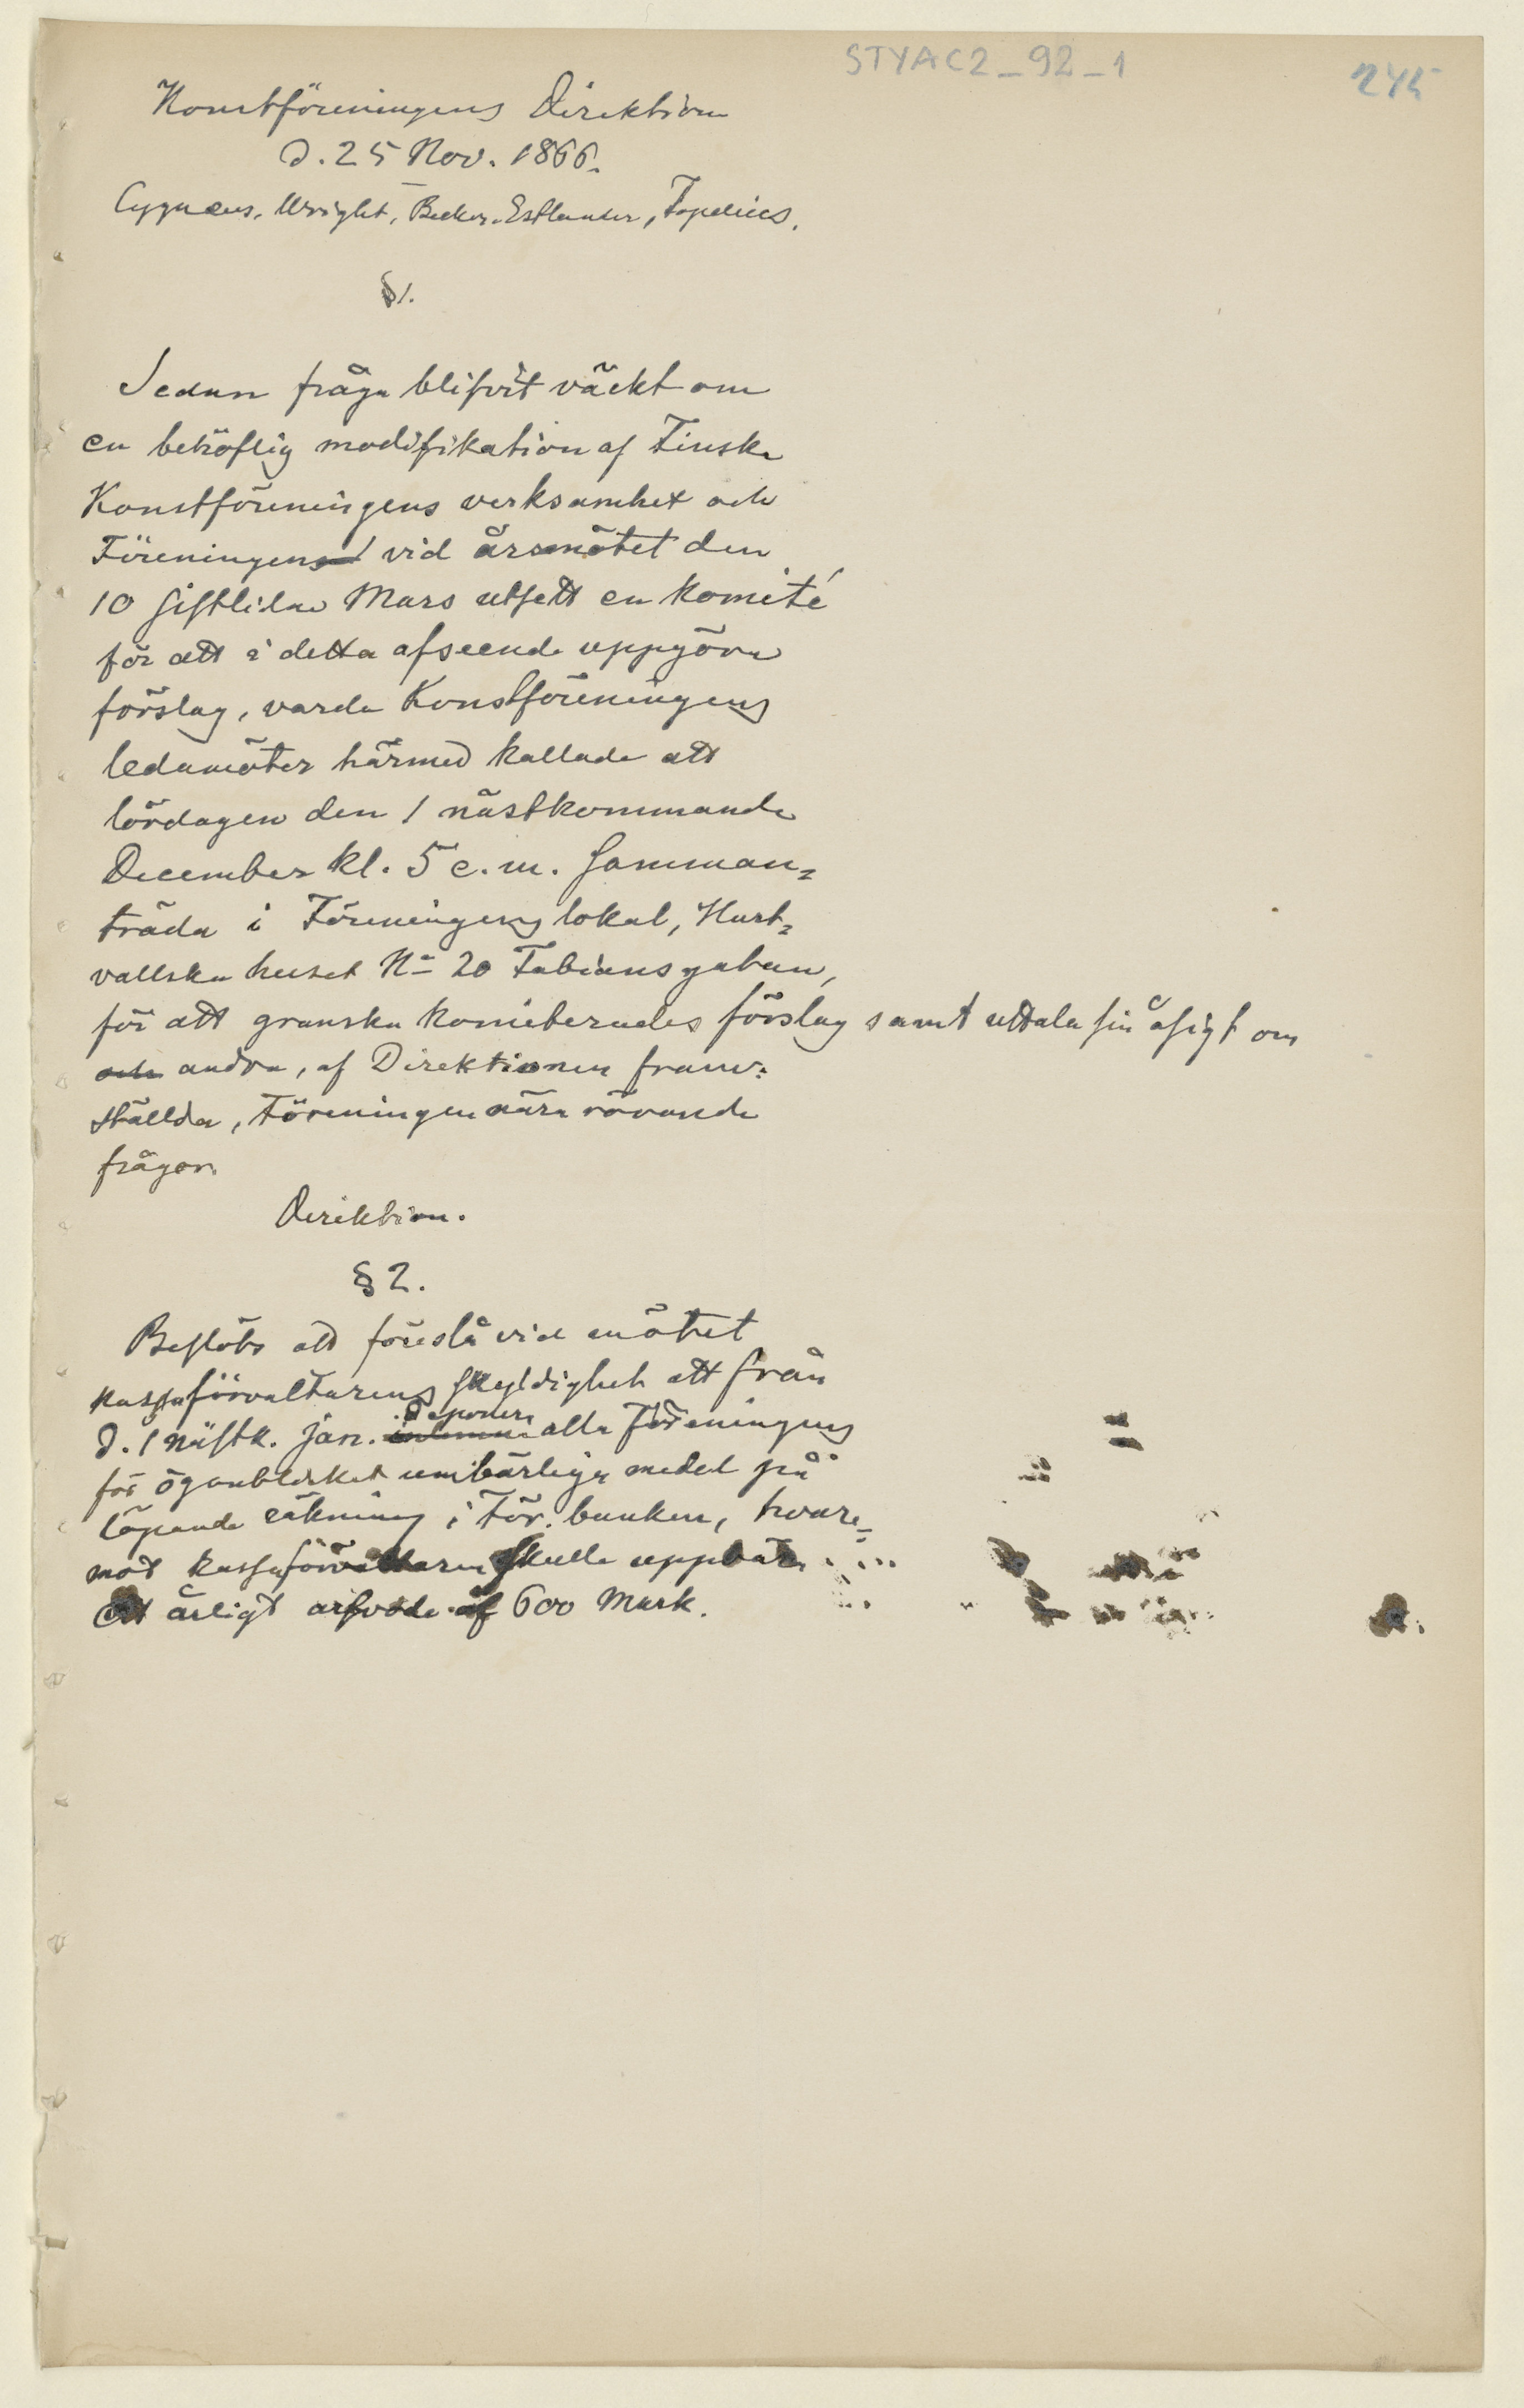 STYAC2_92_1
245
Konstföreningens Direktion
d. 25 Nov. 1866.
Cygnaeus, Wright, Becker, Estlander, Topelius.
§1.
Sedan fråga blifvit väckt om
en behöflig modifikation af Finska
Konstföreningens verksamhet och
Föreningen vid årsmötet den
10 sistlidne Mars utsett en komité
för att i detta afseende uppgöra
förslag, varda Konstföreningens
ledamöter härmed kallade att
lördagen den 1 nästkommande
December kl. 5 e.m. samman=
träda i Föreningens lokal, Hart=
vallska huset No 20 Fabiansgatan,
för att granska komiterades förslag samt uttala sin åsigt om
och andra, af Direktionen fram=
ställda, Föreningen nära rörande
frågor.
Direktion.
§ 2.
Beslöts att föreslå vid mötet
kassaförvaltarens skyldighet att från
d. 1 nästk. Jan. deponera alla Föreningens
för ögonblicket umbärliga medel på
löpande räkning i För. banken, hvare=
mot kassaförvaltaren skulle uppbära
ett årligt arfvode af 600 Mark.